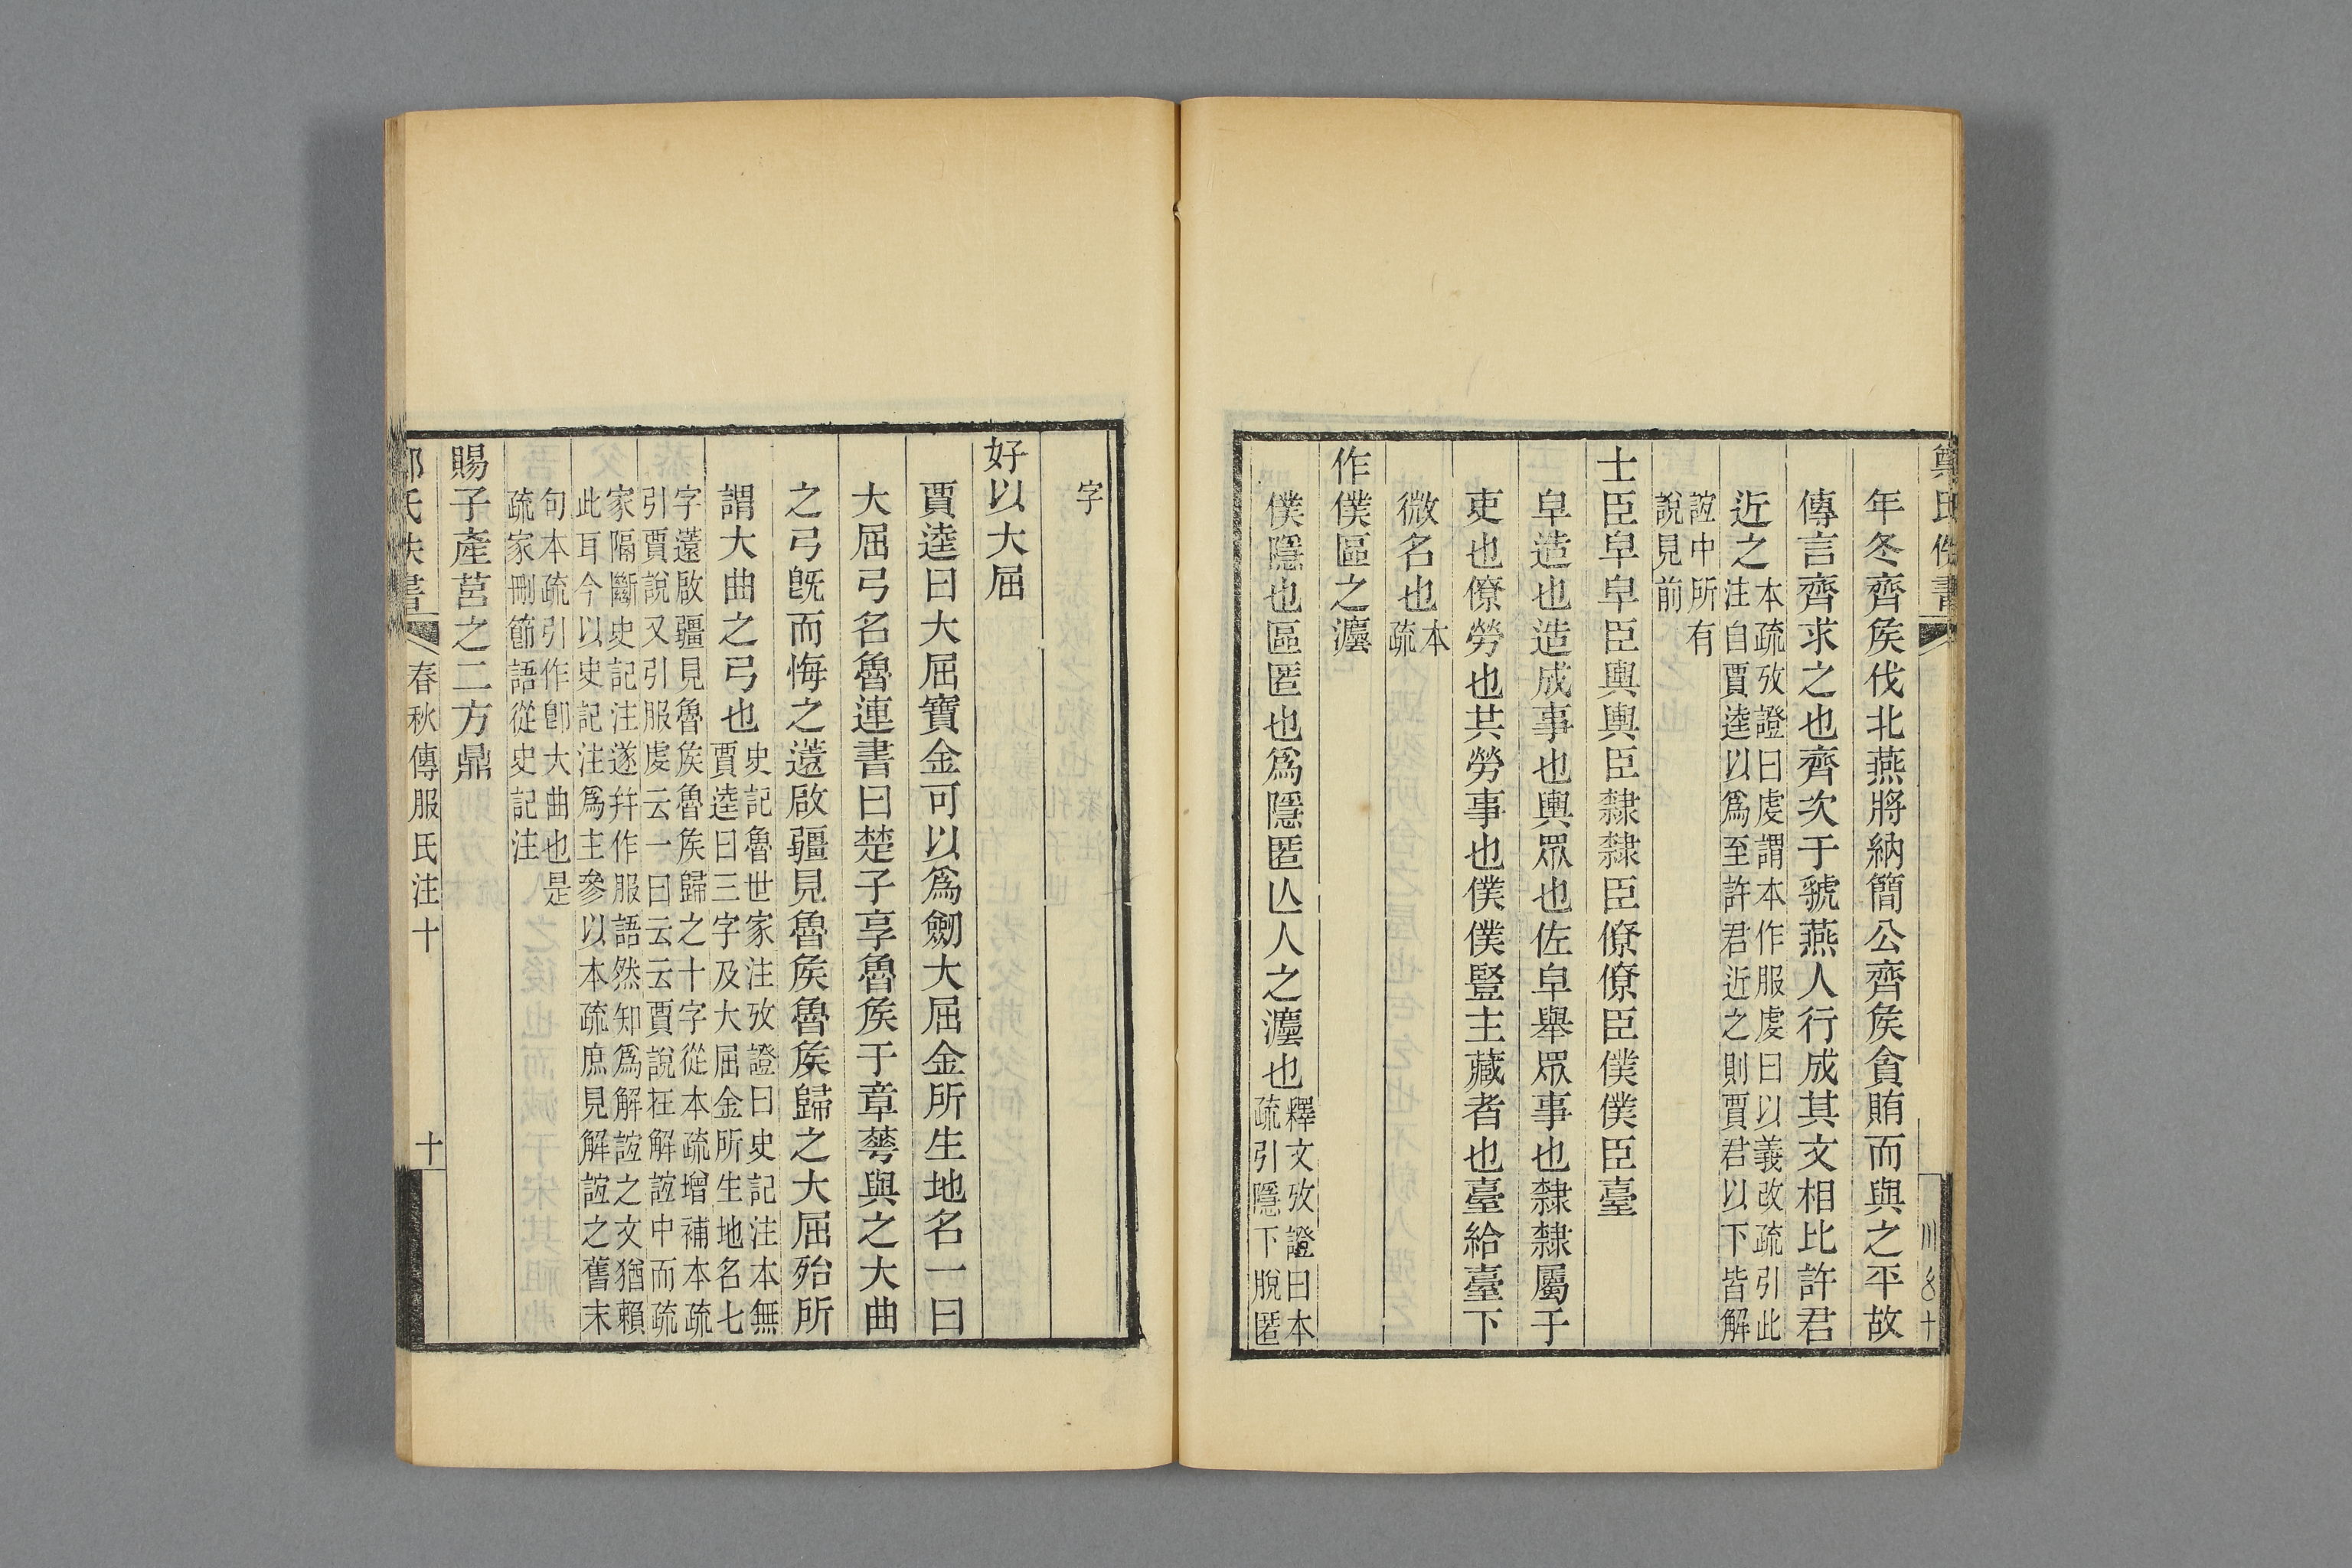 鄭氏佚書
年冬齊矦伐北燕將納簡公齊矦貪賄而與之平故
傳言齊求之也齊次于虢燕人行成其文相比許君
近之本疏攷證曰虔謂本作服虔曰以義改疏引此
注自賈逵以為至許君近之則賈君以下皆解
誼中所有
說見前
士臣皁皁臣輿輿臣隸隸臣僚僚臣僕僕臣臺
皁造也造成事也輿眾也佐皁舉眾事也隸隸屬于
吏也僚勞也共勞事也僕僕豎主藏者也臺給臺下
微名也本
疏
作僕區之灋
僕隱也區匿也為隱匿亾人之灋也釋文攷證曰本
疏引隱下脫匿
字
好以大屈
賈逵曰大屈寶金可以為劒大屈金所生地名一曰
大屈弓名魯連書曰楚子享魯矦于章𦻏與之大曲
之弓旣而悔之薳啟疆見魯矦魯矦歸之大屈殆所
謂大曲之弓也史記魯世家注攷證曰史記注本無
賈逵曰三字及大屈金所生地名七
字薳啟疆見魯矦魯矦歸之十字從本疏增補本疏
引賈說又引服虔云一曰云云賈說在解誼中而疏
家隔斷史記注遂幷作服語然知為解誼之文猶賴
此耳今以史記注為主參以本疏庶見解誼之舊末
句本疏引作卽大曲也是
疏家刪節語從史記注
賜子產莒之二方鼎
氏佚書 春秋傳服氏注十 十